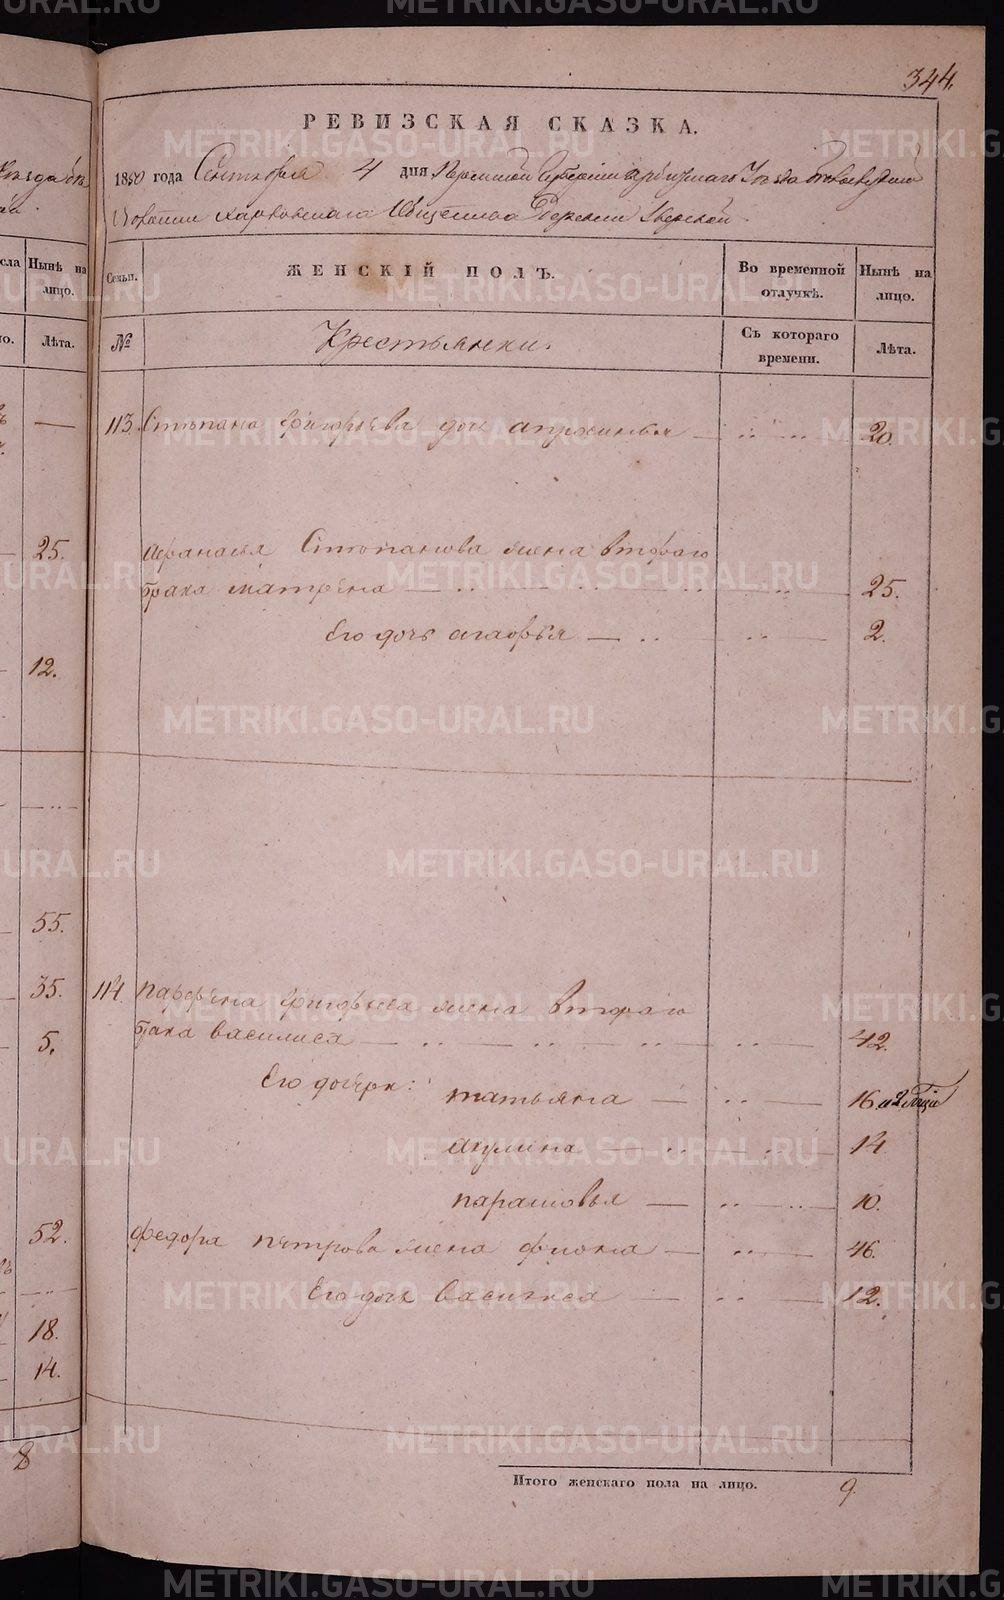 344.
РЕВИЗСКАЯ СКАЗКА.
1850 года Сентября 4 дня Пермской Губерніи Ирбитскаго Уѣзда
Волости Харловскаго Общества Деревни
Семьи.
ЖЕНСКІЙ ПОЛЪ.
Во временной отлучкѣ.
Нынѣ на лицо.
№
Крестьянки.
Съ котораго времени.
Лѣта.
113. Степана Григорьева дочь апросинья — 20.
Афанасья Степанова жена втораго
брака матрена — 25.
Его дочь агафья — 2.
114. парфена Григорьева жена втораго
брака василиса — 42.
Его дочери: татьяна — 16
акулина — 14
парасковья — 10.
федора петрова жена фиона — 46.
Его дочь Василиса — 12.
Итого женскаго пола на лицо. 9.
Нынѣ на лицо.
Лѣта.
25.
12.
55.
35.
5.
52.
18.
14.
8
METRIKI.GASO-URAL.RU